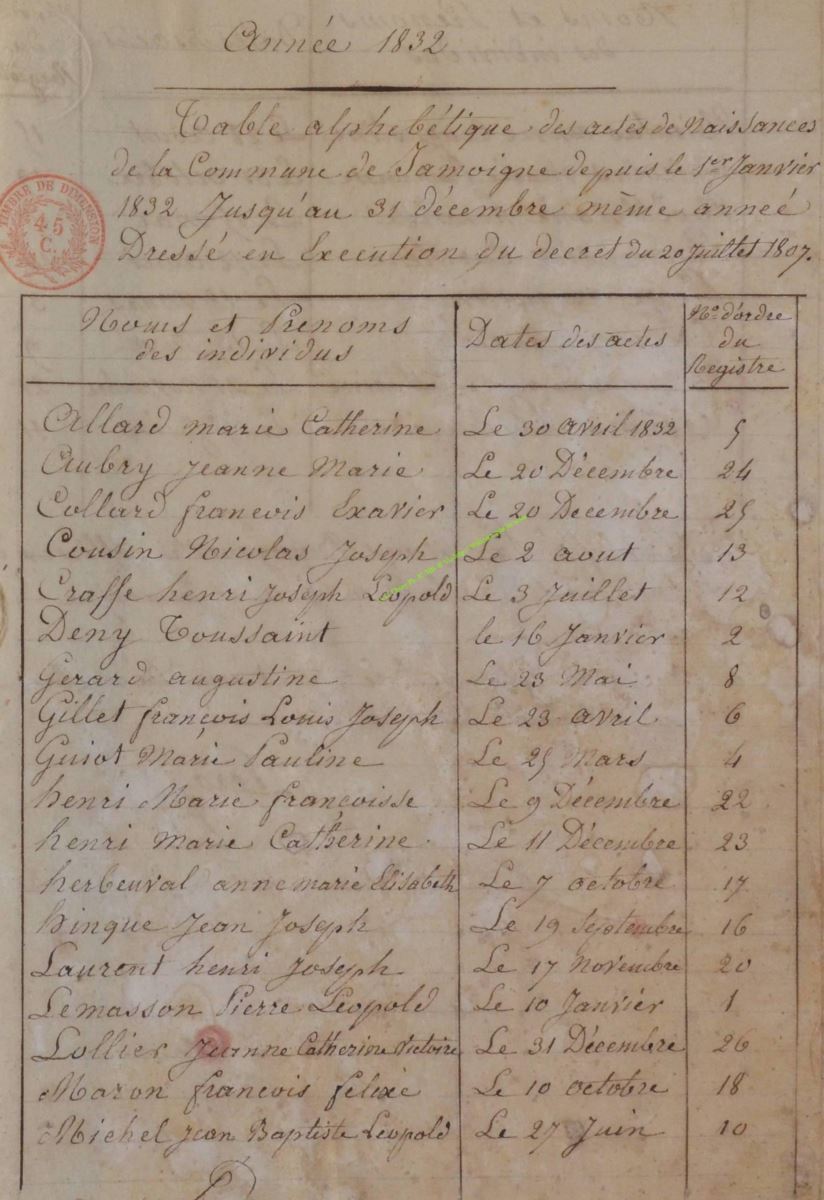 Année 1832
Table alphebétique des actes de Naissances
de la Commune de Jamoigne depuis le 1er Janvier
1832 Jusqu'au 31 décembre même anneé
Dressé en Execution du decret du 20 Juillet 1807.
TIMBRE DE DIMENSION
45
C.
Noms et Prenoms
des individus
Dates des actes
No d'ordre
du
Registre
Allard marie Catherine Le 30 avril 1832 5
Aubry Jeanne Marie Le 20 Décembre 24
Collard francois Exavier Le 20 Decembre 25
Cousin Nicolas Joseph Le 2 aout 13
Craffe henri Joseph Léopold Le 3 Juillet 12
Deny Toussaint le 16 Janvier 2
Gerard augustine Le 23 Mai 8
Gillet françois Louis Joseph Le 23 avril 6
Guiot Marie Pauline Le 25 Mars 4
henri Marie françoisse Le 9 Décembre 22
henri Marie Catherine Le 11 Décembre 23
herbeuval anne marie Elisabeth Le 7 octobre 17
hinque Jean Joseph Le 19 Septembre 16
Laurent henri Joseph Le 17 Novembre 20
Lemasson Pierre Léopold Le 10 Janvier 1
Lollier Jeanne Catherine Victoire Le 31 Décembre 26
Maron francois felixe Le 10 octobre 18
Michel Jean Baptiste Léopold Le 27 Juin 10